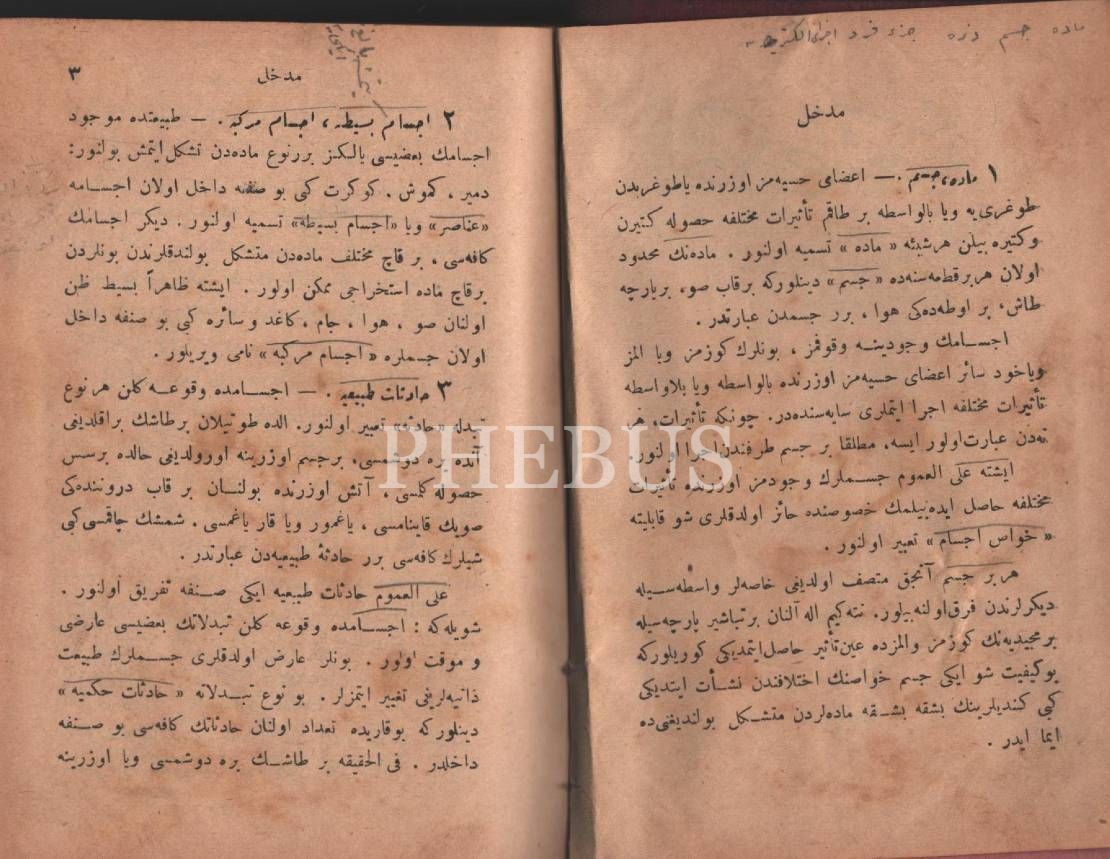 ماده جسم ذره جزء فرد
مدخل
١ ماده، جسم . — اعضاى حسيه‌مز اوزرنده ياطوغريدن
طوغرى‌يه ويا بالواسطه بر طاقم تأثيرات مختلفه حصوله كتيرن
وكتيره بيلن هرشيئه « ماده » تسميه اولنور . ماده‌نك محدود
اولان هربرقطعه‌سنه‌ده « جسم » دينلوركه برقاب صو، برپارچه
طاش، بر اوطه‌ده‌كى هوا ، برر جسمدن عبارتدر .
اجسامك وجودينه وقوفمز ، بونلرك كوزمز ويا المز
وياخود سائر اعضاى حسيه‌مز اوزرنده بالواسطه ويا بلاواسطه
تأثيرات مختلفه اجرا ايتملرى سايه‌سنده‌در. چونكه تأثيرات، هر
نه‌دن عبارت اولور ايسه، مطلقا بر جسم طرفندن اجرا اولنور.
ايشته على العموم جسملرك وجودمز اوزرنده تأثيرات
مختلفه حاصل ايده‌بيلمك خصوصنده حائز اولدقلرى شو قابليته
« خواص اجسام » تعبير اولنور .
هربر جسم آنجق متصف اولديغى خاصه‌لر واسطه‌سيله
ديكرلرندن فرق اولنه‌بيلور. نته‌كيم اله آلنان برتباشير پارچه‌سيله
برمجيديه‌نك كوزمز والمزده عين تأثير حاصل ايتمديكى كوريلوركه
بوكيفيت شو ايكى جسم خواصنك اختلافندن نشأت ايتديكى
كبى كنديلرينك بشقه بشقه ماده‌لردن متشكل بولنديغنى‌ده
ايما ايدر .
مدخل ٣
٢ اجسام بسيطه ، اجسام مركبه . — طبيعتده موجود
اجسامك بعضيسى يالكز برنوع ماده‌دن تشكل ايتمش بولنور:
دمير ، كموش . كوكرت كبى بو صنفه داخل اولان اجسامه
«عناصر» ويا «اجسام بسيطه» تسميه اولنور . ديكر اجسامك
كافه‌سى ، بر قاچ مختلف ماده‌دن متشكل بولندقلرندن بونلردن
برقاچ ماده استخراجى ممكن اولور . ايشته ظاهراً بسيط ظن
اولنان صو ، هوا ، جام ، كاغد و سائره كبى بو صنفه داخل
اولان جسملره « اجسام مركبه » نامى ويريلور .
٣ حادثات طبيعيه . — اجسامده وقوعه كلن هر نوع
تبدله «حادثه» تعبير اولنور. الده طوتيلان برطاشك براقلديغى
آنده يره دوشمسى، برجسم اوزرينه اورولديغى حالده برسس
حصوله كلمسى ، آتش اوزرنده بولنان بر قاب دروننده‌كى
صويك قاينامسى ، ياغمور ويا قار ياغمسى. شمشك چاقمسى كبى
شيلرك كافه‌سى برر حادثۀ طبيعيه‌دن عبارتدر .
على العموم حادثات طبيعيه ايكى صنفه تفريق اولنور .
شويله‌كه : اجسامده وقوعه كلن تبدلاتك بعضيسى عارضى
و موقت اولور . بونلر عارض اولدقلرى جسملرك طبيعت
ذاتيه‌لرينى تغيير ايتمزلر . بو نوع تبدلاته « حادثات حكميه »
دينلوركه بوقاريده تعداد اولنان حادثاتك كافه‌سى بو صنفه
داخلدر . فى الحقيقه بر طاشك يره دوشمسى ويا اوزرينه
PHEBUS